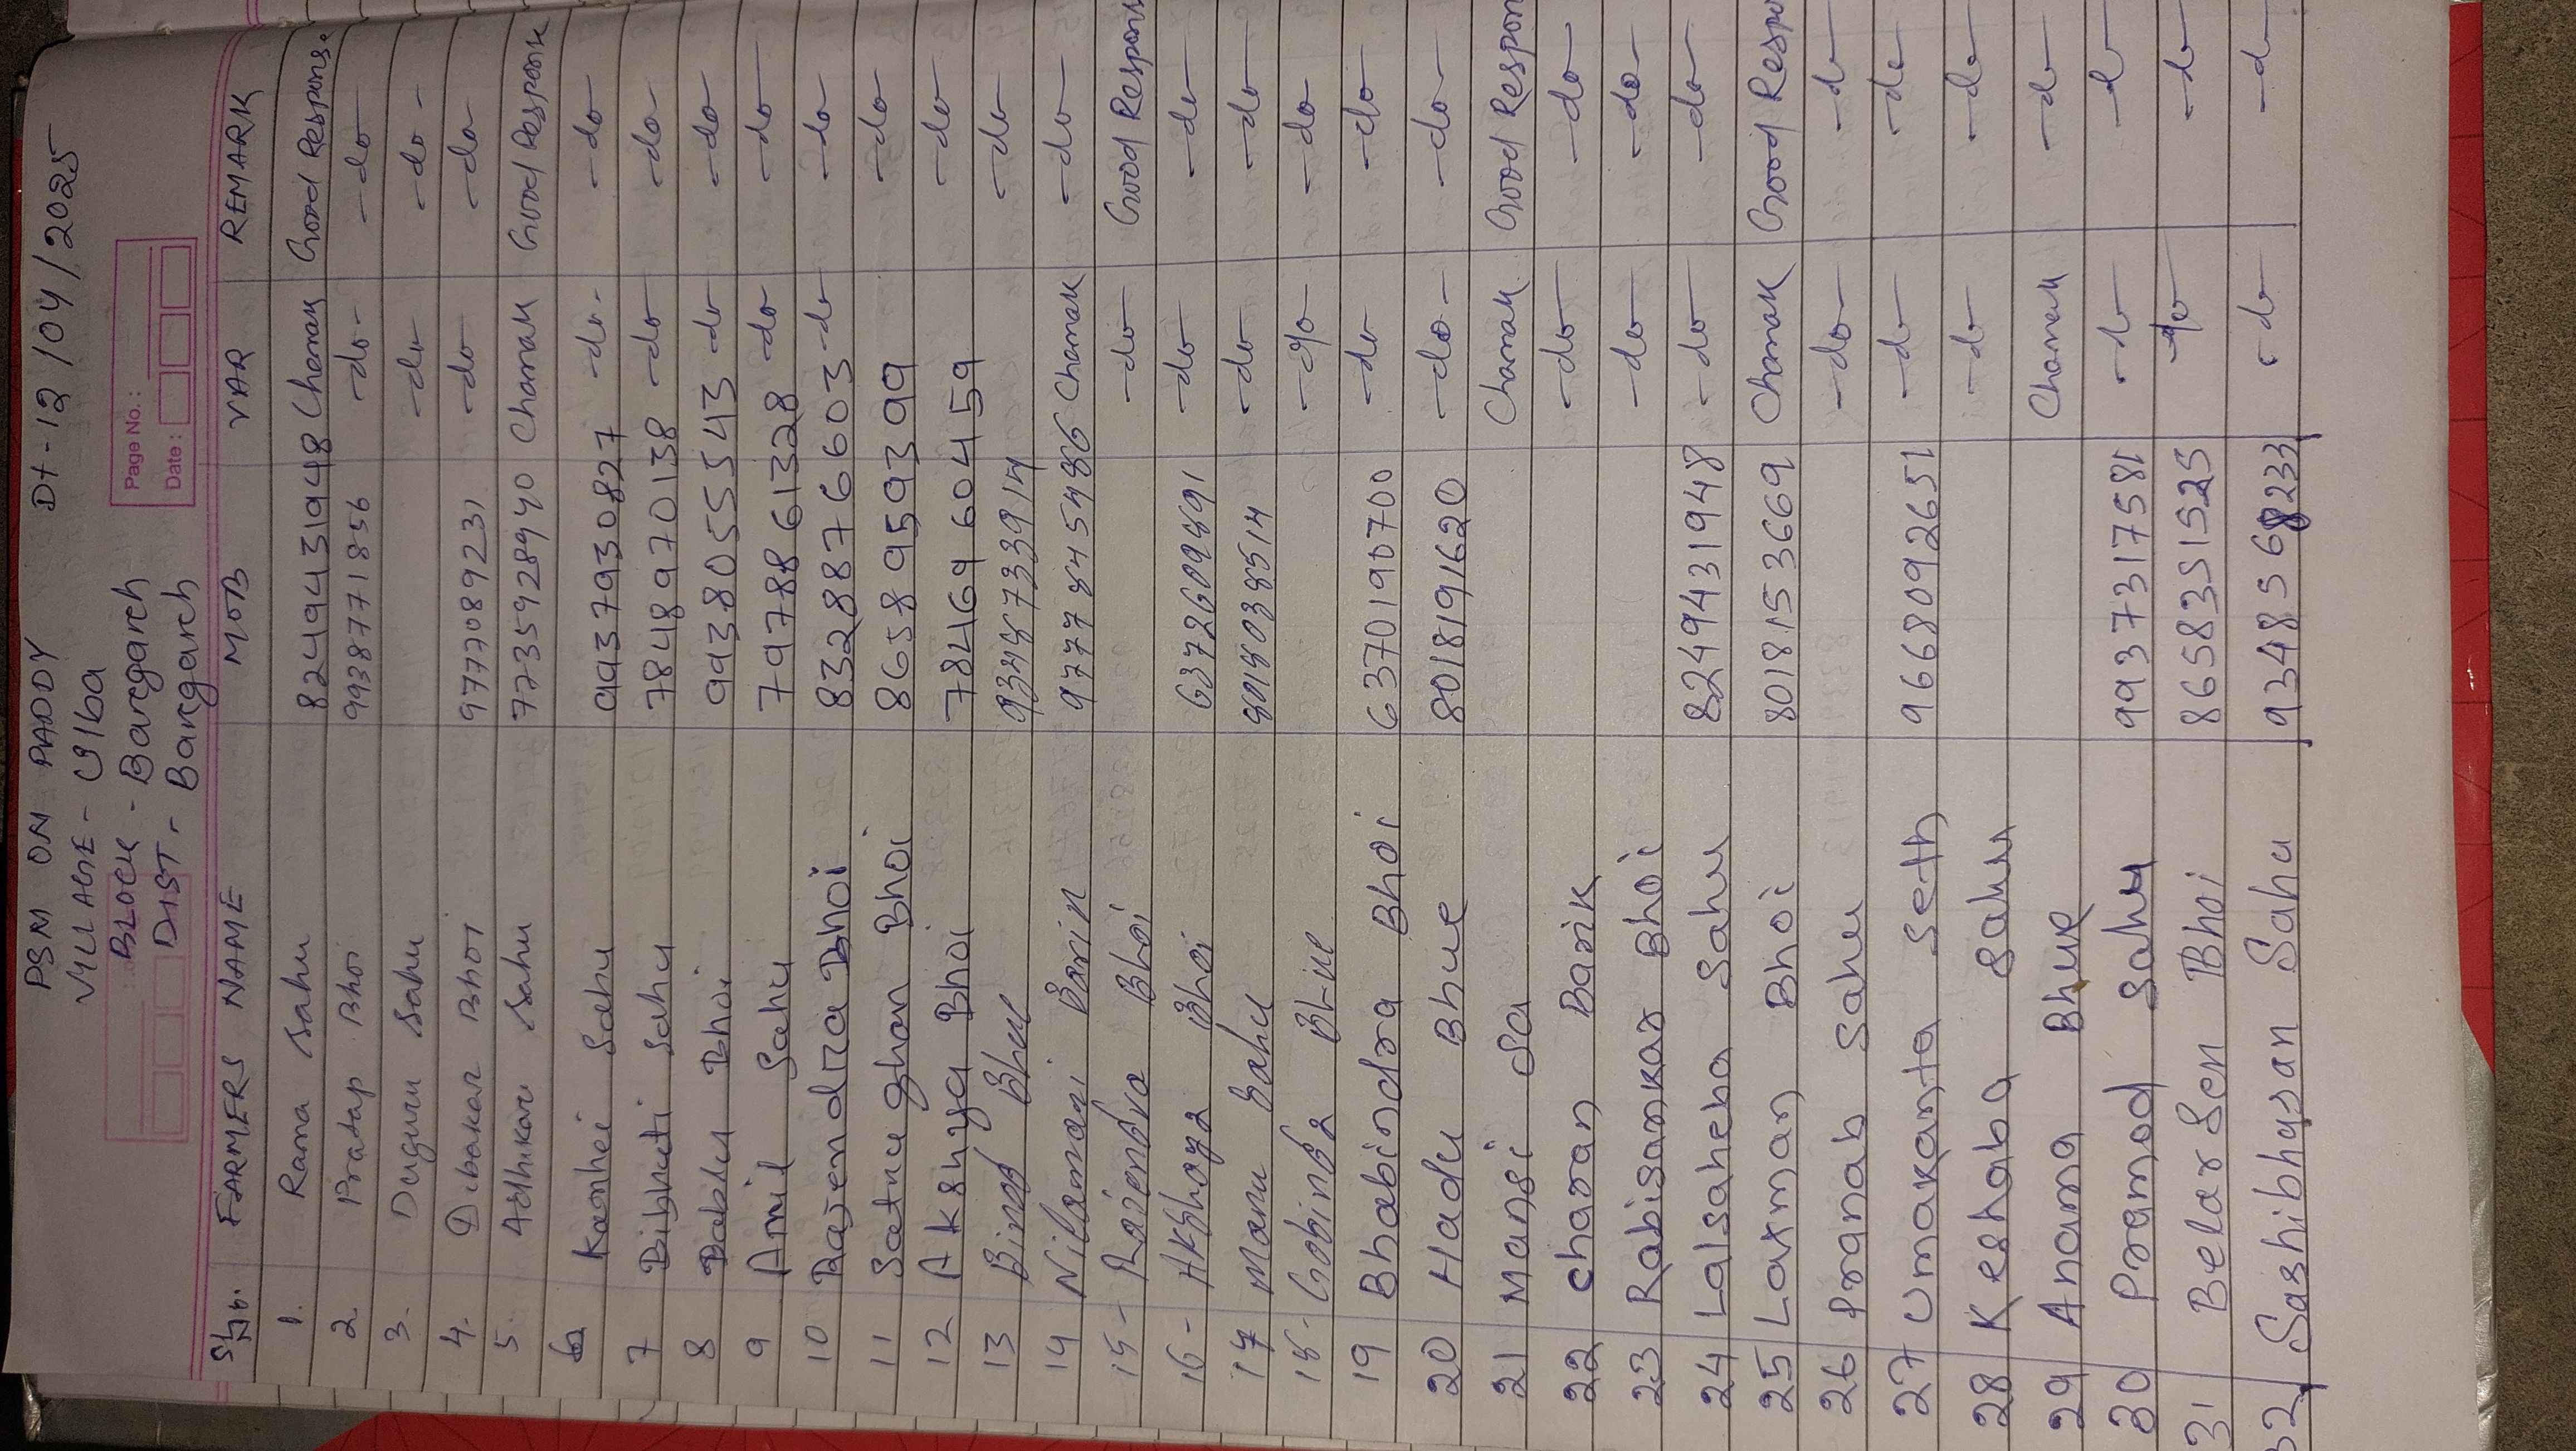 PSM ON PADDY Dt-12/04/2025
VILLAGE - Ulba
BLOCK - Bargarh
DIST. - Bargarh
Page No.:
Date:
Sl. No. FARMERS NAME MOB VAR REMARK
1. Rama Sahu 8249431948 Chamak Good Response
2. Pratap Bhoi 9938771856 -do- -do-
3. Duguru Sahu -do- -do-
4. Dibakar Bhoi 9777089231 -do- -do-
5. Adhikari Sahu 7735928940 Chamak Good Response
6 Kanhei Sahu 9937930827 -do- -do-
7 Bibhuti Sahu 7848970138 -do- -do-
8 Bablu Bhoi 9938055543 -do- -do-
9 Amil Sahu 7978861328 -do- -do-
10 Rajendra Bhoi 8328876603 -do- -do-
11 Satrughan Bhoi 8658959399 -do-
12 Akshya Bhoi 7846960459 -do-
13 Binod Bhue 9348733914 -do-
14 Nilamani Barik 9777845486 Chamak -do-
15- Rajendra Bhoi -do- Good Respons
16- Akshaya Bhoi 6372609891 -do- -do-
17 Manu Sahu 8018038514 -do- -do-
18- Gobinda Bhue -do- -do-
19 Bhabindra Bhoi 6370190700 -do- -do-
20 Hadu Bhue 8018191620 -do- -do-
21 Mansi Sa Chamak Good Respon
22 Charan Barik -do- -do-
23 Rabisankar Bhoi -do- -do-
24 Lalsaheba Sahu 8249431948 -do- -do-
25 Laxman Bhoi 8018153669 Chamak Good Respo
26 Pranab Sahu -do- -do-
27 Umakanta Seth 9668092651 -do- -do-
28 Keshaba Sahu -do- -do-
29 Anama Bhue Chamak -do-
30 Pramod Sahu 9937317581 -do- -do-
31 Belarsen Bhoi 8658351525 -do- -do-
32 Sashibhusan Sahu 9348568233 -do- -do-